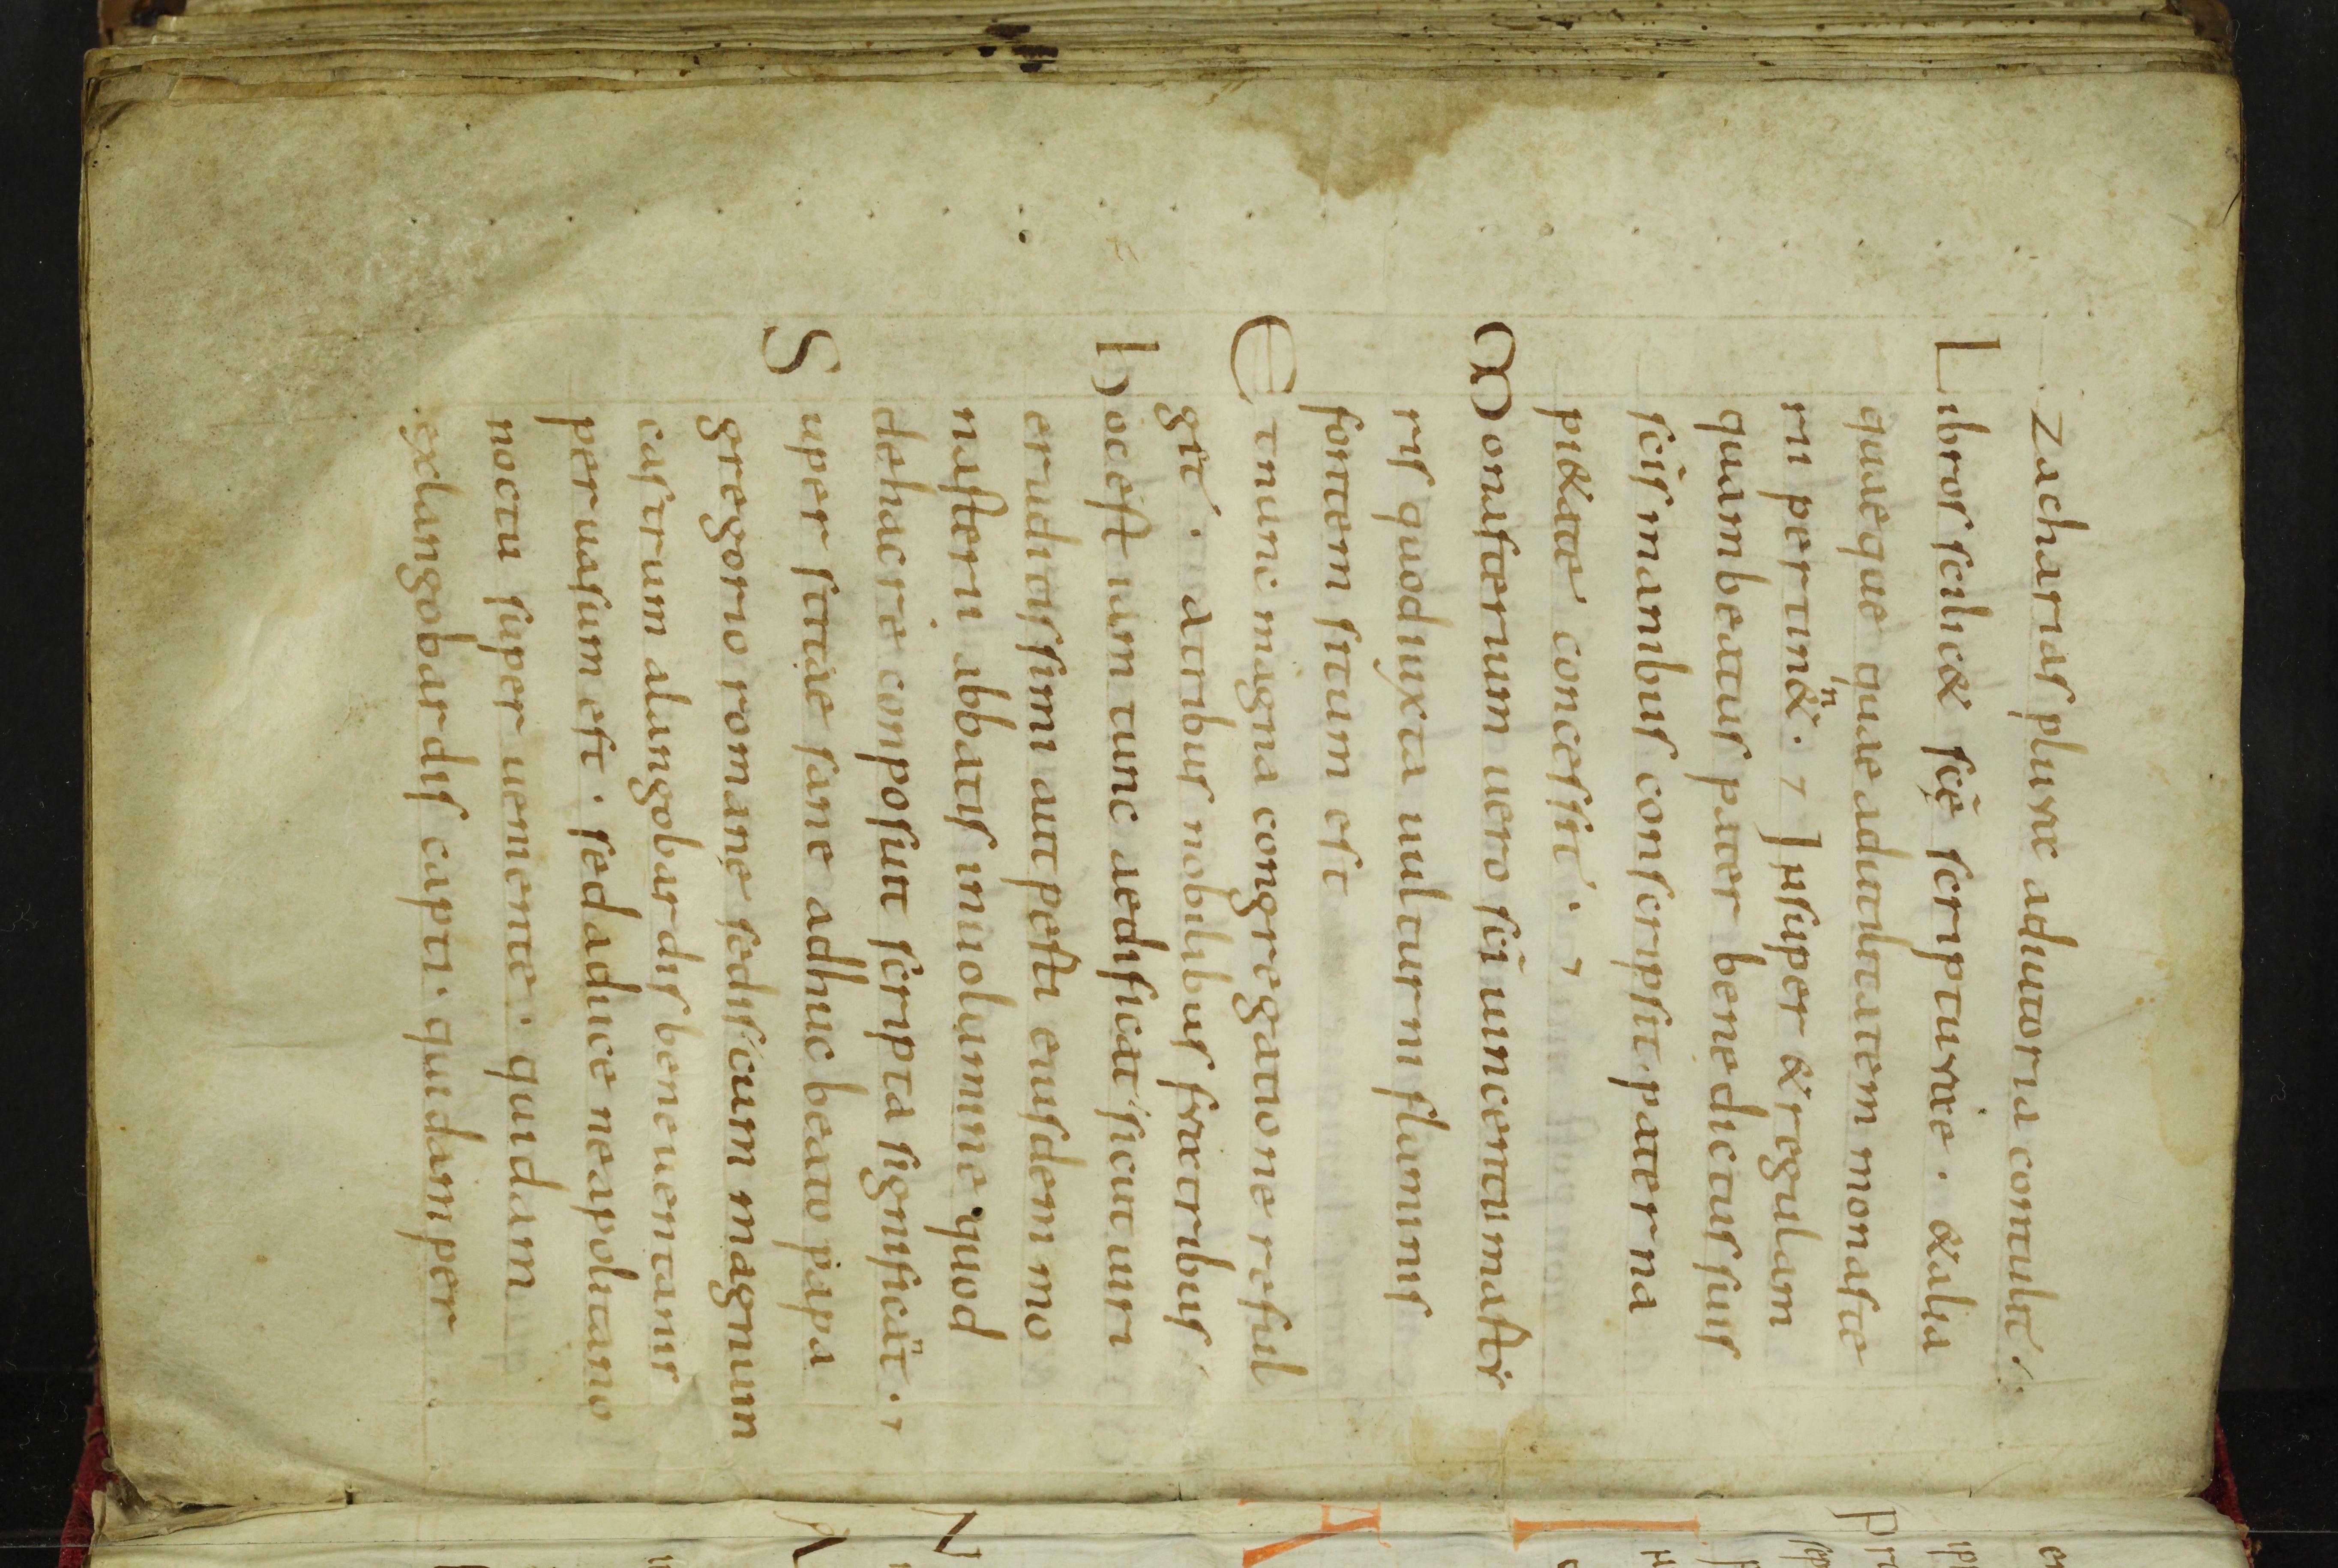 zacharias plura adiutoria contulit.
Libros scilic& scē scripturae. &alia
quaeque quae adutilitatem monaste
rii pertin&. Insuper & regulam
n
quambeatus pater benedictus suis
scīs manibus conscripsit. paterna
pi&ate concessit.,
Monasterium uero sci uincentii martyr
ris quodiuxta uulturni fluminis
fontem situm est
Etnunc magna congregatione reful
git. atribus nobilibus fratribus
hocest iam tunc aedificat sicut uiri
eruditissimi autpesti eiusdem mo
nasterii abbatis inuolumine quod
dehacre conposuit scripta significāt.,
Superstite sane adhuc beato papa
gregorio romane sedis cum magnum
castrum alangobardis beneuentanis
peruasum est. sed aduce neapolitano
noctu superueniente. quidam
exlangobardis capti. quidamper